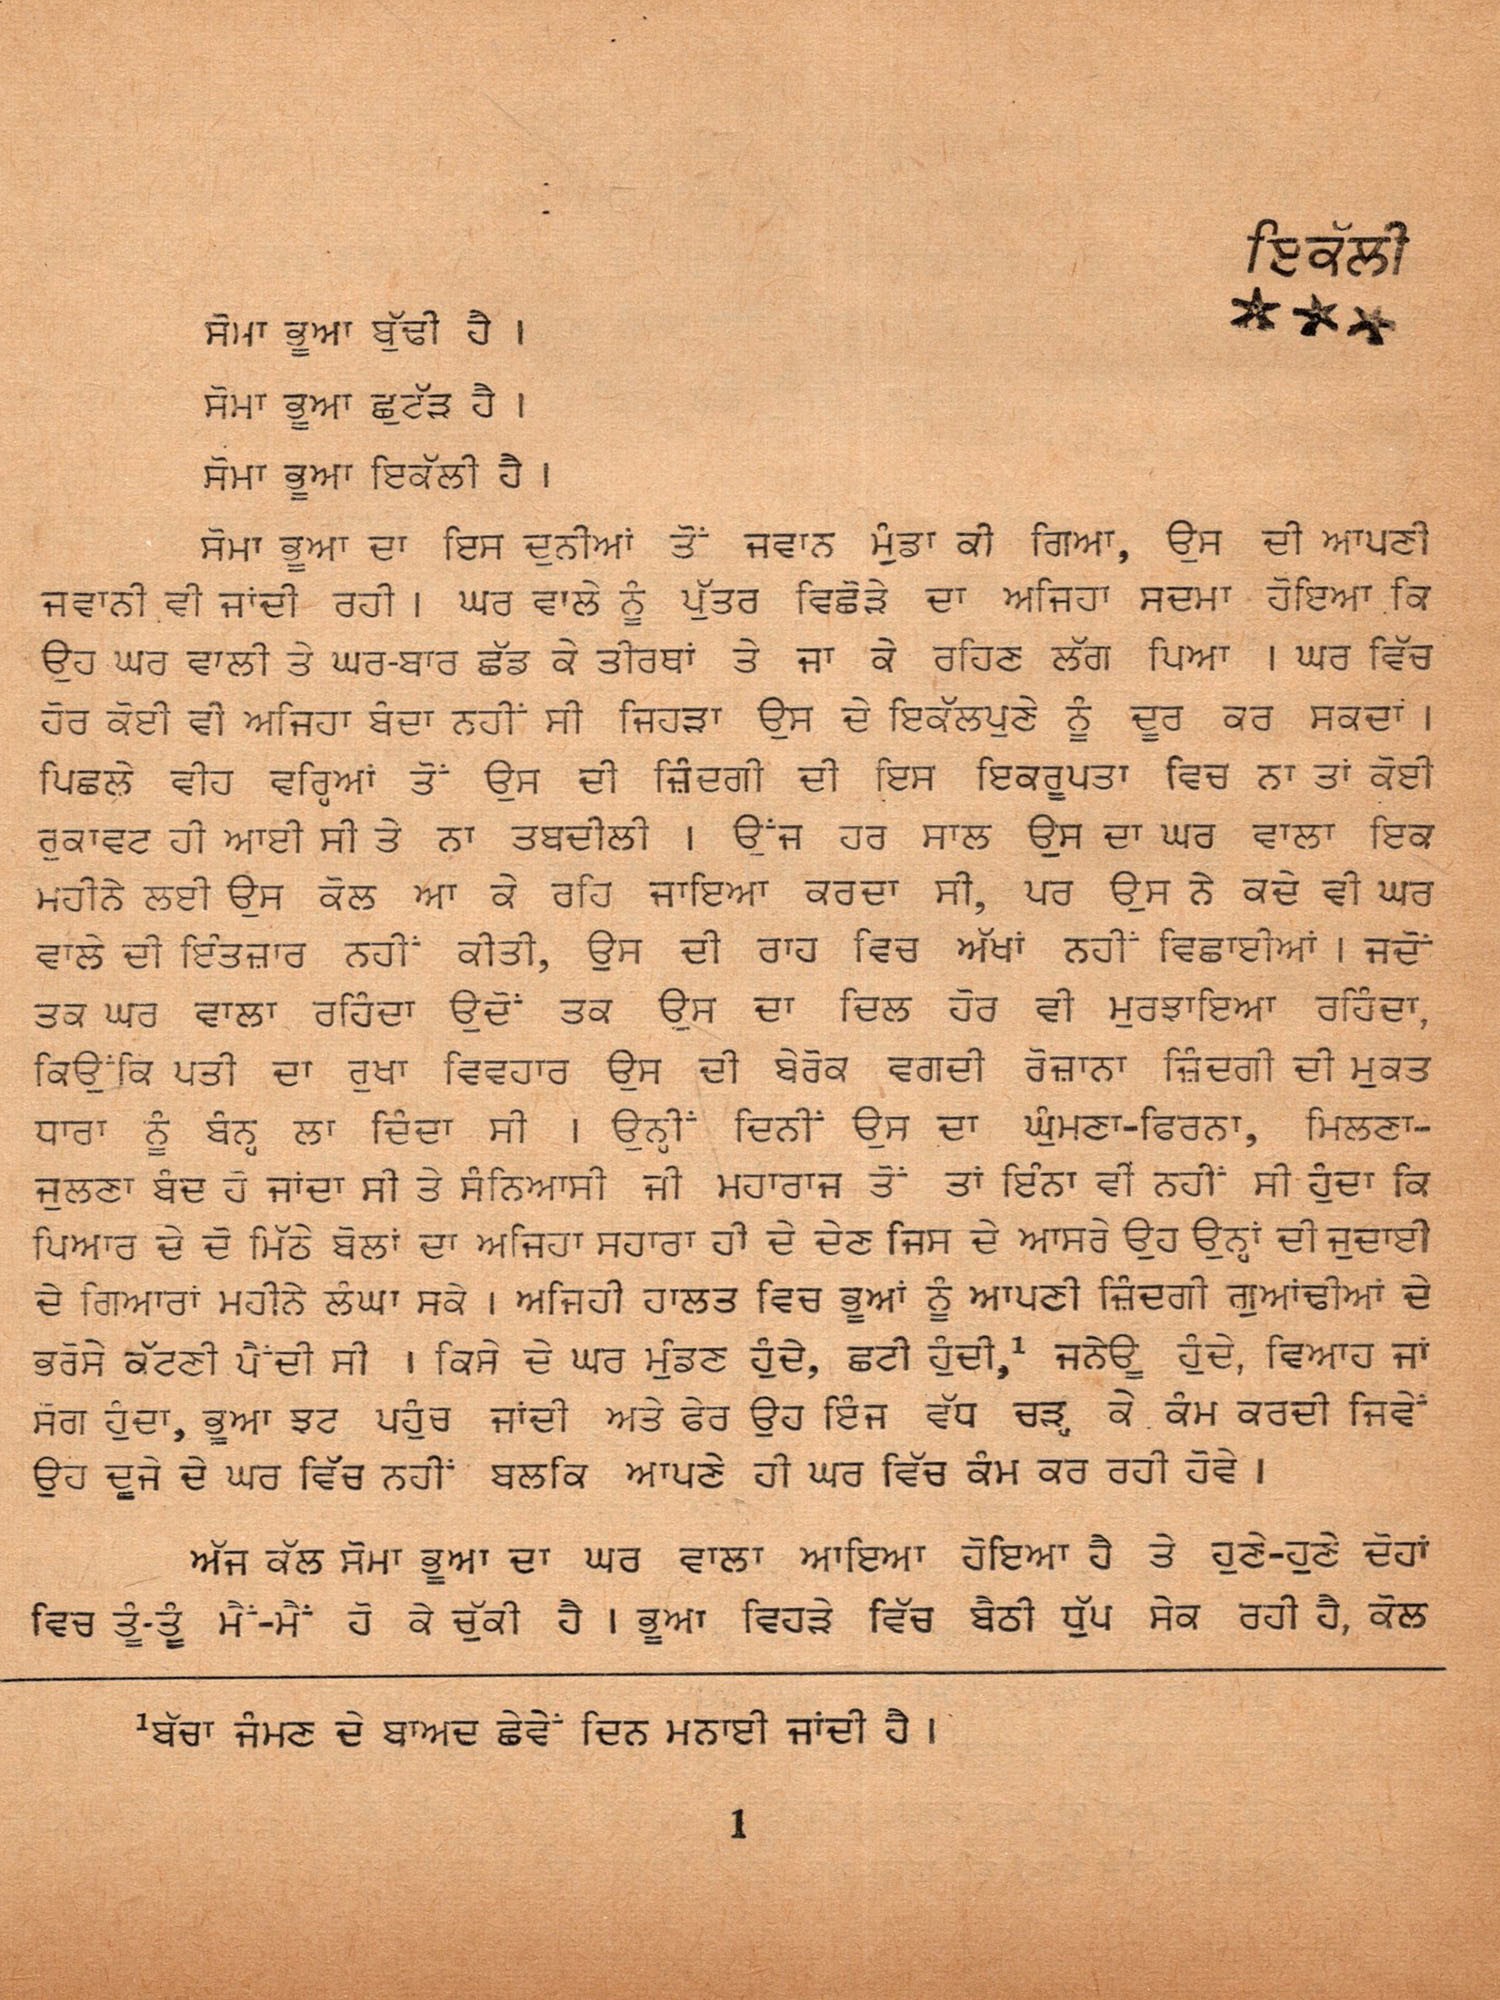 ਇਕੱਲੀ
★★★
ਸੋਮਾ ਭੂਆ ਬੁੱਢੀ ਹੈ ।
ਸੋਮਾ ਭੂਆ ਛੁਟੱੜ ਹੈ ।
ਸੋਮਾ ਭੂਆ ਇਕੱਲੀ ਹੈ ।
ਸੋਮਾ ਭੂਆ ਦਾ ਇਸ ਦੁਨੀਆਂ ਤੋਂ ਜਵਾਨ ਮੁੰਡਾ ਕੀ ਗਿਆ, ਉਸ ਦੀ ਆਪਣੀ
ਜਵਾਨੀ ਵੀ ਜਾਂਦੀ ਰਹੀ । ਘਰ ਵਾਲੇ ਨੂੰ ਪੁੱਤਰ ਵਿਛੋੜੇ ਦਾ ਅਜਿਹਾ ਸਦਮਾ ਹੋਇਆ ਕਿ
ਉਹ ਘਰ ਵਾਲੀ ਤੇ ਘਰ-ਬਾਰ ਛੱਡ ਕੇ ਤੀਰਥਾਂ ਤੇ ਜਾ ਕੇ ਰਹਿਣ ਲੱਗ ਪਿਆ । ਘਰ ਵਿੱਚ
ਹੋਰ ਕੋਈ ਵੀ ਅਜਿਹਾ ਬੰਦਾ ਨਹੀਂ ਸੀ ਜਿਹੜਾ ਉਸ ਦੇ ਇਕੱਲਪੁਣੇ ਨੂੰ ਦੂਰ ਕਰ ਸਕਦਾਂ ।
ਪਿਛਲੇ ਵੀਹ ਵਰ੍ਹਿਆਂ ਤੋਂ ਉਸ ਦੀ ਜ਼ਿੰਦਗੀ ਦੀ ਇਸ ਇਕਰੂਪਤਾ ਵਿਚ ਨਾ ਤਾਂ ਕੋਈ
ਰੁਕਾਵਟ ਹੀ ਆਈ ਸੀ ਤੇ ਨਾ ਤਬਦੀਲੀ । ਉਂਜ ਹਰ ਸਾਲ ਉਸ ਦਾ ਘਰ ਵਾਲਾ ਇਕ
ਮਹੀਨੇ ਲਈ ਉਸ ਕੋਲ ਆ ਕੇ ਰਹਿ ਜਾਇਆ ਕਰਦਾ ਸੀ, ਪਰ ਉਸ ਨੇ ਕਦੇ ਵੀ ਘਰ
ਵਾਲੇ ਦੀ ਇੰਤਜ਼ਾਰ ਨਹੀਂ ਕੀਤੀ, ਉਸ ਦੀ ਰਾਹ ਵਿਚ ਅੱਖਾਂ ਨਹੀਂ ਵਿਛਾਈਆਂ । ਜਦੋਂ
ਤਕ ਘਰ ਵਾਲਾ ਰਹਿੰਦਾ ਉਦੋਂ ਤਕ ਉਸ ਦਾ ਦਿਲ ਹੋਰ ਵੀ ਮੁਰਝਾਇਆ ਰਹਿੰਦਾ,
ਕਿਉਂਕਿ ਪਤੀ ਦਾ ਰੁਖਾ ਵਿਵਹਾਰ ਉਸ ਦੀ ਬੇਰੋਕ ਵਗਦੀ ਰੋਜ਼ਾਨਾ ਜ਼ਿੰਦਗੀ ਦੀ ਮੁਕਤ
ਧਾਰਾ ਨੂੰ ਬੰਨ੍ਹ ਲਾ ਦਿੰਦਾ ਸੀ । ਉਨ੍ਹੀਂ ਦਿਨੀਂ ਉਸ ਦਾ ਘੁੰਮਣਾ-ਫਿਰਨਾ, ਮਿਲਣਾ-
ਜੁਲਣਾ ਬੰਦ ਹੋ ਜਾਂਦਾ ਸੀ ਤੇ ਸੰਨਿਆਸੀ ਜੀ ਮਹਾਰਾਜ ਤੋਂ ਤਾਂ ਇੰਨਾ ਵੀਂ ਨਹੀਂ ਸੀ ਹੁੰਦਾ ਕਿ
ਪਿਆਰ ਦੇ ਦੋ ਮਿੱਠੇ ਬੋਲਾਂ ਦਾ ਅਜਿਹਾ ਸਹਾਰਾ ਹੀ ਦੇ ਦੇਣ ਜਿਸ ਦੇ ਆਸਰੇ ਉਹ ਉਨ੍ਹਾਂ ਦੀ ਜੁਦਾਈ
ਦੇ ਗਿਆਰਾਂ ਮਹੀਨੇ ਲੰਘਾ ਸਕੇ । ਅਜਿਹੀ ਹਾਲਤ ਵਿਚ ਭੂਆਂ ਨੂੰ ਆਪਣੀ ਜ਼ਿੰਦਗੀ ਗੁਆਂਢੀਆਂ ਦੇ
ਭਰੋਸੇ ਕੱਟਣੀ ਪੈਂਦੀ ਸੀ । ਕਿਸੇ ਦੇ ਘਰ ਮੁੰਡਣ ਹੁੰਦੇ, ਛਟੀ ਹੁੰਦੀ,¹ ਜਨੇਊ ਹੁੰਦੇ, ਵਿਆਹ ਜਾਂ
ਸੋਗ ਹੁੰਦਾ, ਭੂਆ ਝਟ ਪਹੁੰਚ ਜਾਂਦੀ ਅਤੇ ਫੇਰ ਉਹ ਇੰਜ ਵੱਧ ਚੜ੍ਹ ਕੇ ਕੰਮ ਕਰਦੀ ਜਿਵੇਂ
ਉਹ ਦੂਜੇ ਦੇ ਘਰ ਵਿੱਚ ਨਹੀਂ ਬਲਕਿ ਆਪਣੇ ਹੀ ਘਰ ਵਿੱਚ ਕੰਮ ਕਰ ਰਹੀ ਹੋਵੇ ।
ਅੱਜ ਕੱਲ ਸੋਮਾ ਭੂਆ ਦਾ ਘਰ ਵਾਲਾ ਆਇਆ ਹੋਇਆ ਹੈ ਤੇ ਹੁਣੇ-ਹੁਣੇ ਦੋਹਾਂ
ਵਿਚ ਤੂੰ-ਤੂੰ ਮੈਂ-ਮੈਂ ਹੋ ਕੇ ਚੁੱਕੀ ਹੈ । ਭੂਆ ਵਿਹੜੇ ਵਿੱਚ ਬੈਠੀ ਧੁੱਪ ਸੇਕ ਰਹੀ ਹੈ, ਕੋਲ
¹ਬੱਚਾ ਜੰਮਣ ਦੇ ਬਾਅਦ ਛੇਵੇਂ ਦਿਨ ਮਨਾਈ ਜਾਂਦੀ ਹੈ ।
1